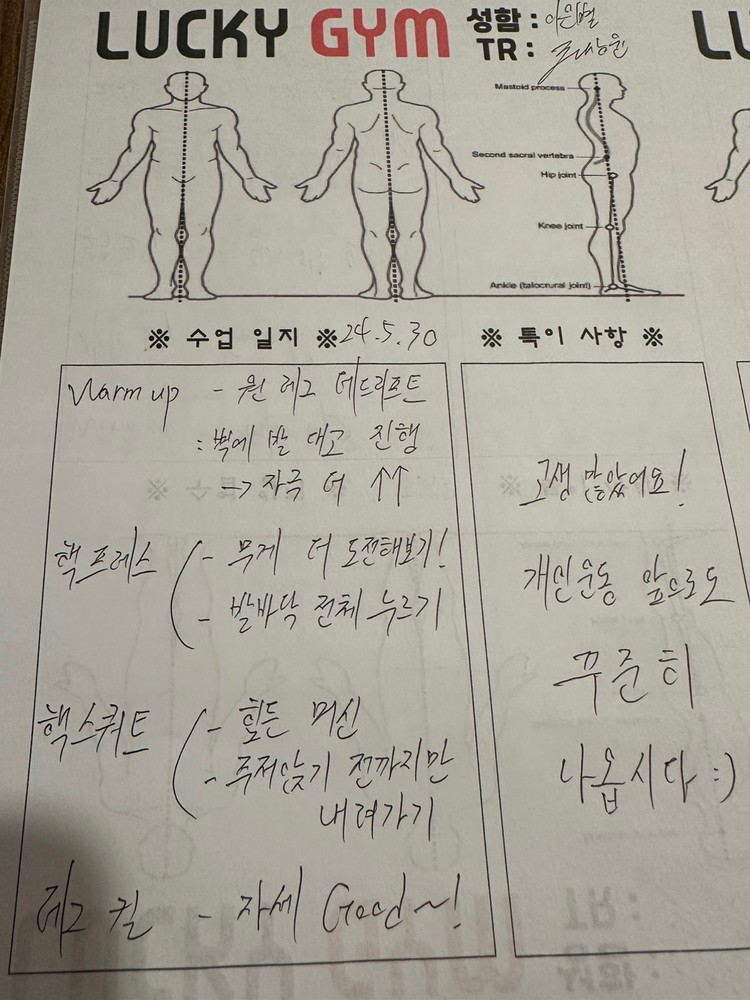 LUCKY GYM
성함 :
TR :
LU
Mastoid process
Second sacral vertebra
Hip joint
Knee joint
Ankle (talocrural joint)
※ 수업 일지 ※ 24.5.30
※ 특이 사항 ※
Warm up - 원 레그 데드리프트
: 벽에 발 대고 진행
→ 자극 더 ↑↑
핵프레스 - 무게 더 도전해보기!
- 발바닥 전체 누르기
핵스쿼트 - 힘든 머신
- 주저앉기 전까지만
내려가기
레그 컬 - 자세 Good~!
고생 많았어요!
개인운동 앞으로도
꾸준히
나옵시다 :)